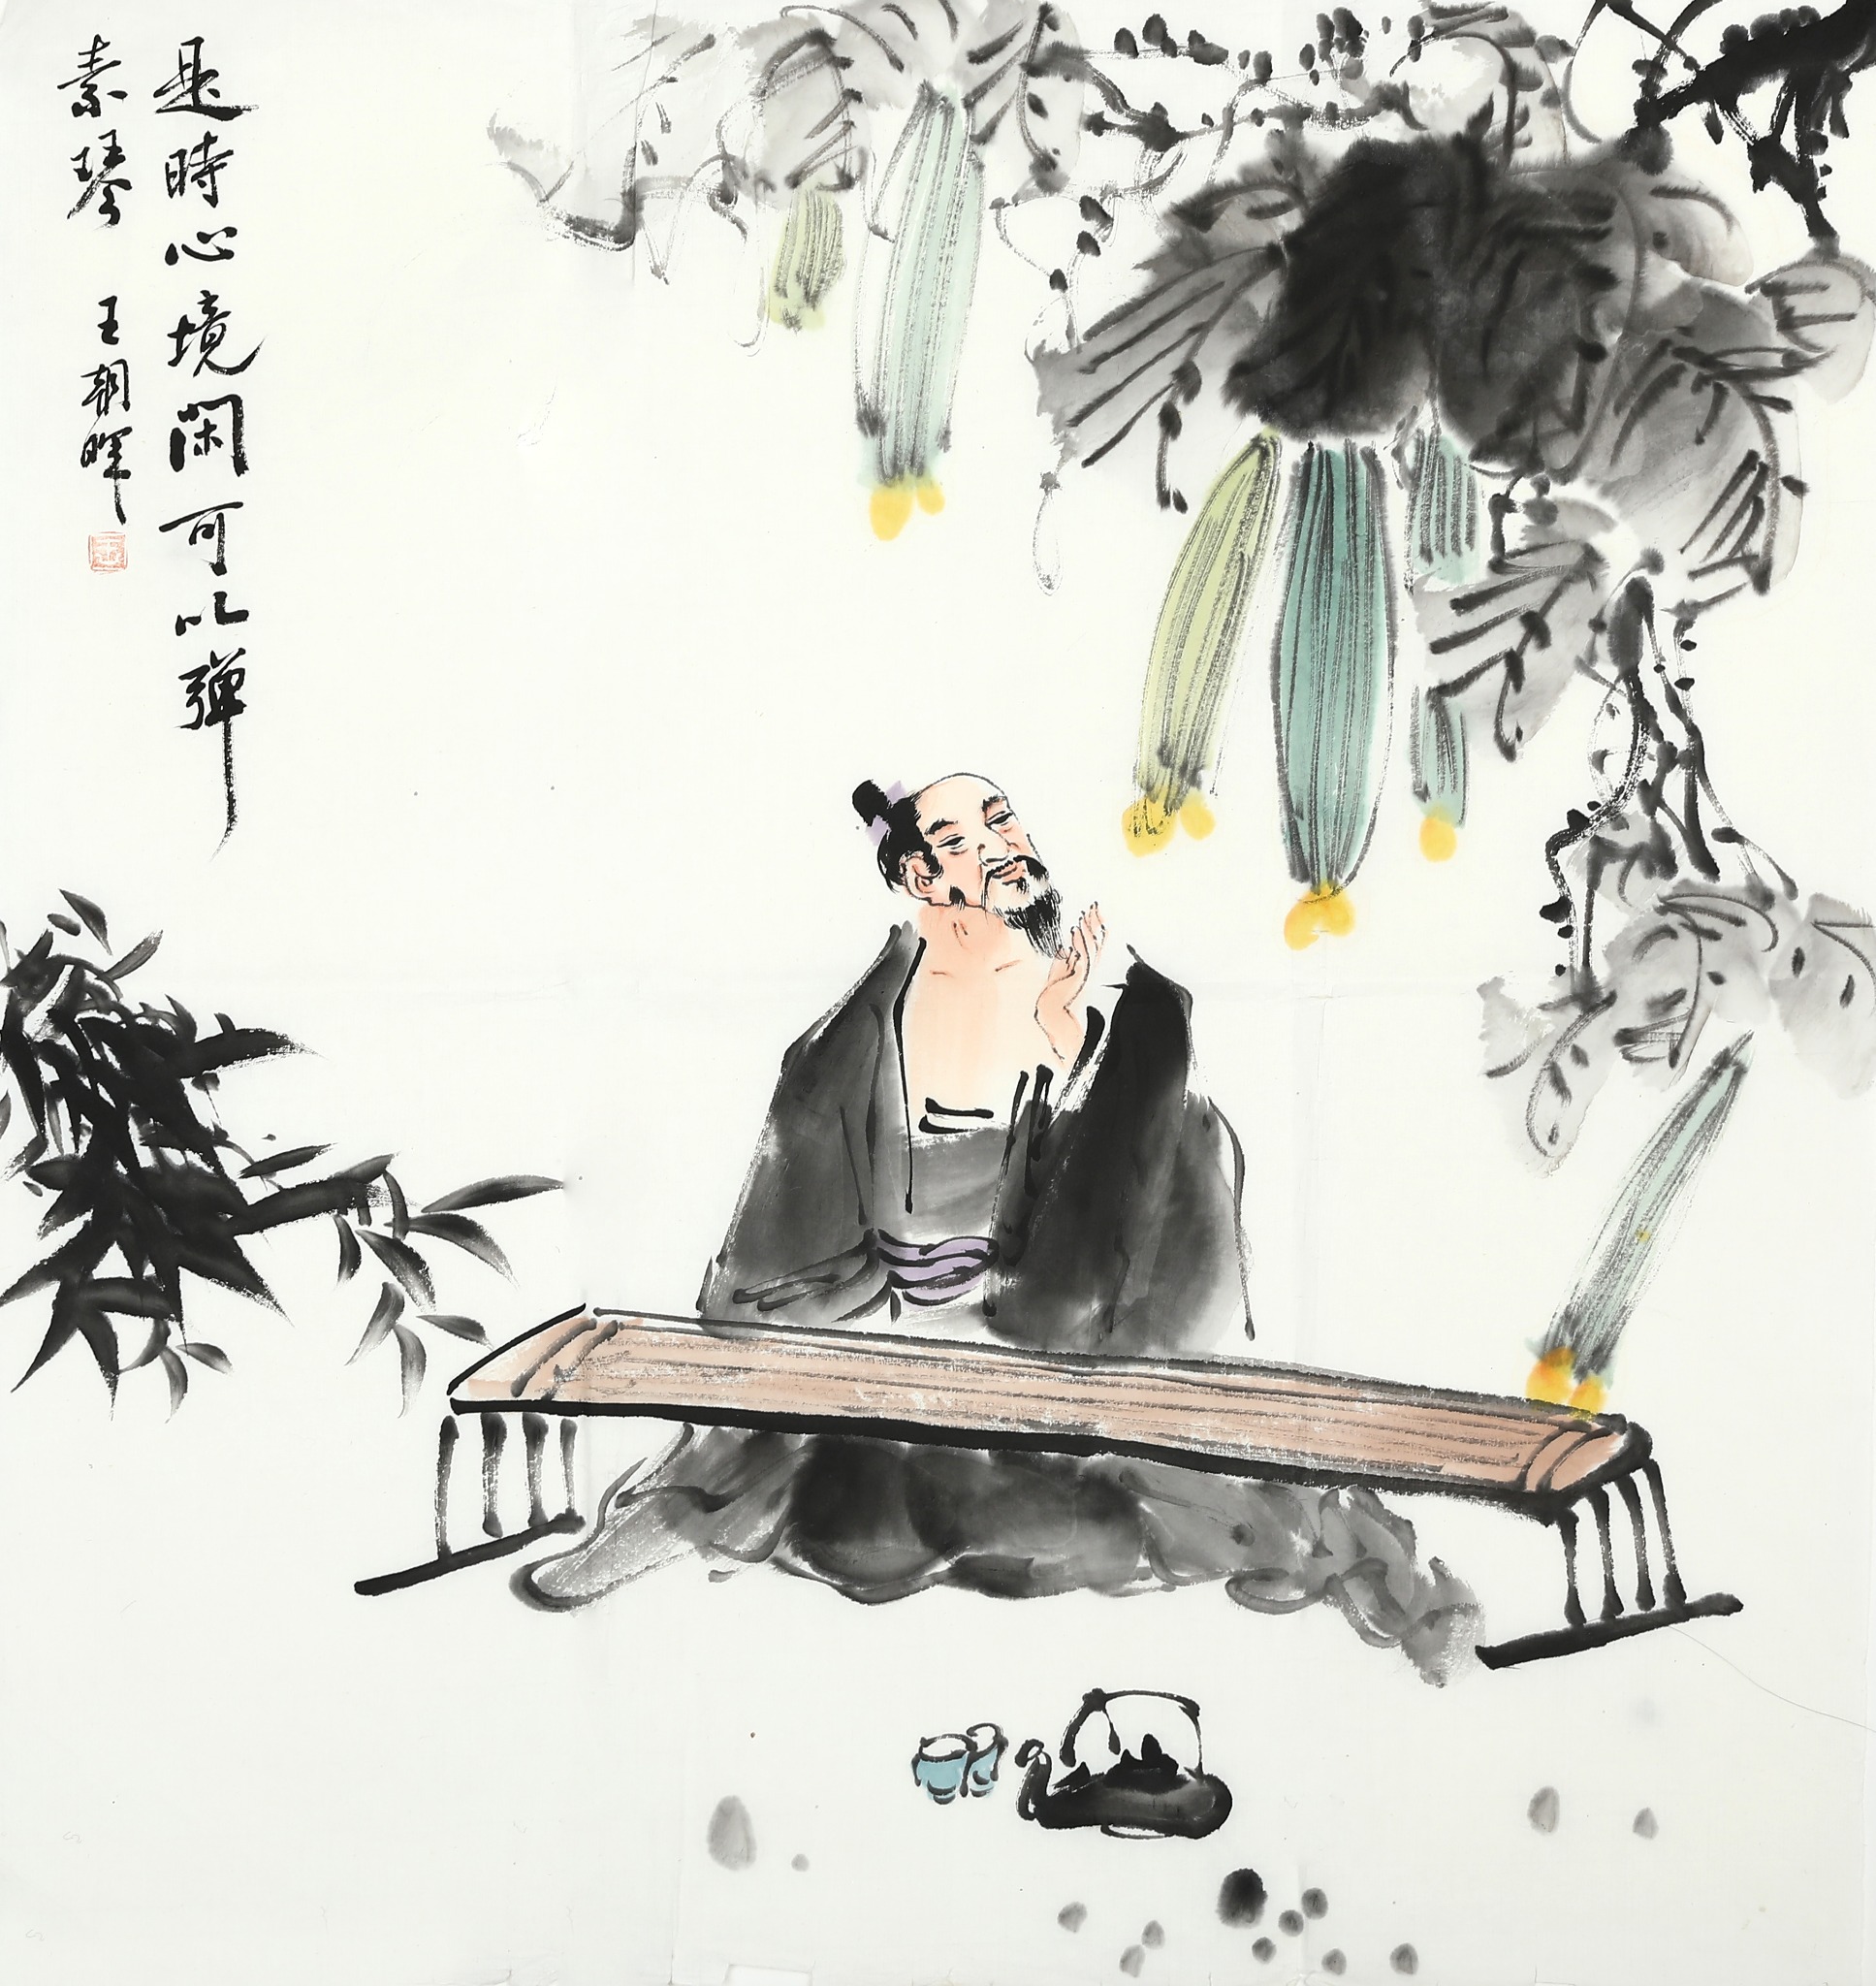 是時心境閑可以彈
素琴 王朝暉
王